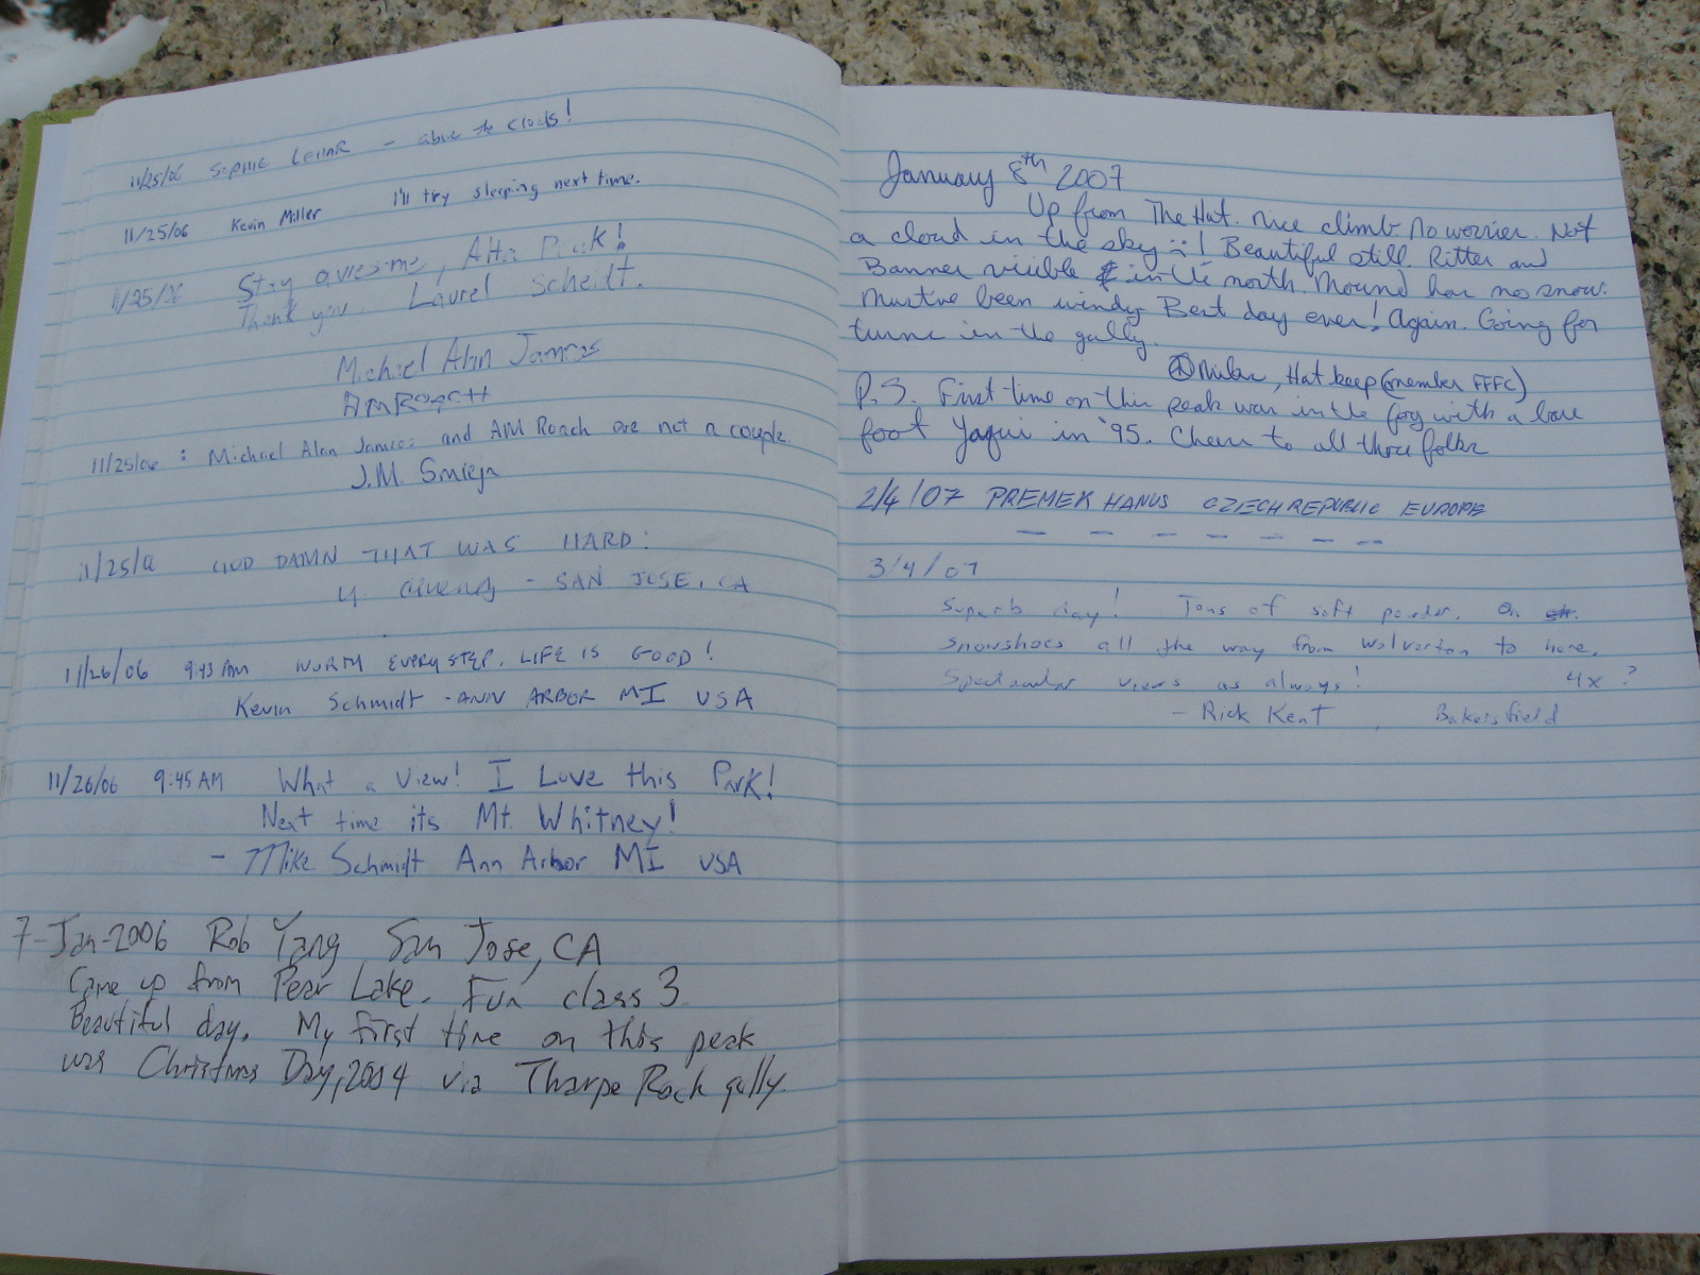 11/25/06 Sophie Lehar - above the clouds!
11/25/06 Kevin Miller I'll try sleeping next time.
11/25/06 Stay awesome, Alta Peak!
Thank you. Laurel Scheidt.
Michael Alan James
AM Roach
11/25/06 : Michael Alan James and AM Roach are not a couple
J.M. Smieja
11/25/0 GOD DAMN THAT WAS HARD!
- SAN JOSE, CA
11/26/06 9:43 AM WORTH EVERY STEP. LIFE IS GOOD!
Kevin Schmidt - ANN ARBOR MI USA
11/26/06 9:45 AM What a view! I Love this Park!
Next time its Mt. Whitney!
- Mike Schmidt Ann Arbor MI USA
7-Jan-2006 Rob Yang San Jose, CA
Came up from Pear Lake. Fun class 3
Beautiful day. My first time on this peak
was Christmas Day, 2004 via Tharpe Rock gully.
January 8th 2007
Up from The Hut. Nice climb No worries. Not
a cloud in the sky :-! Beautiful still. Ritter and
Banner visible in the north. Mound has no snow.
Must've been windy Best day ever! Again. Going for
turns in the gully.
Hut keep (member FFFC)
P.S. First time on this peak was in the fog with a bare
foot Yaqui in '95. Cheers to all those folks
2/4/07 PREMEK HANUS CZECH REPUBLIC EUROPE
- - - - - - -
3/4/07
Superb day! Tons of soft powder. On
snowshoes all the way from Wolverton to here.
Spectacular views as always! 4x ?
- Rick Kent, Bakersfield